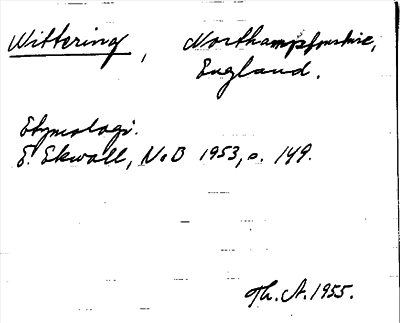 Wittering, Northamptonshire,
England.
Etymologi.
E. Ekwall, NoB 1953, s. 149.
Th. A. 1955.